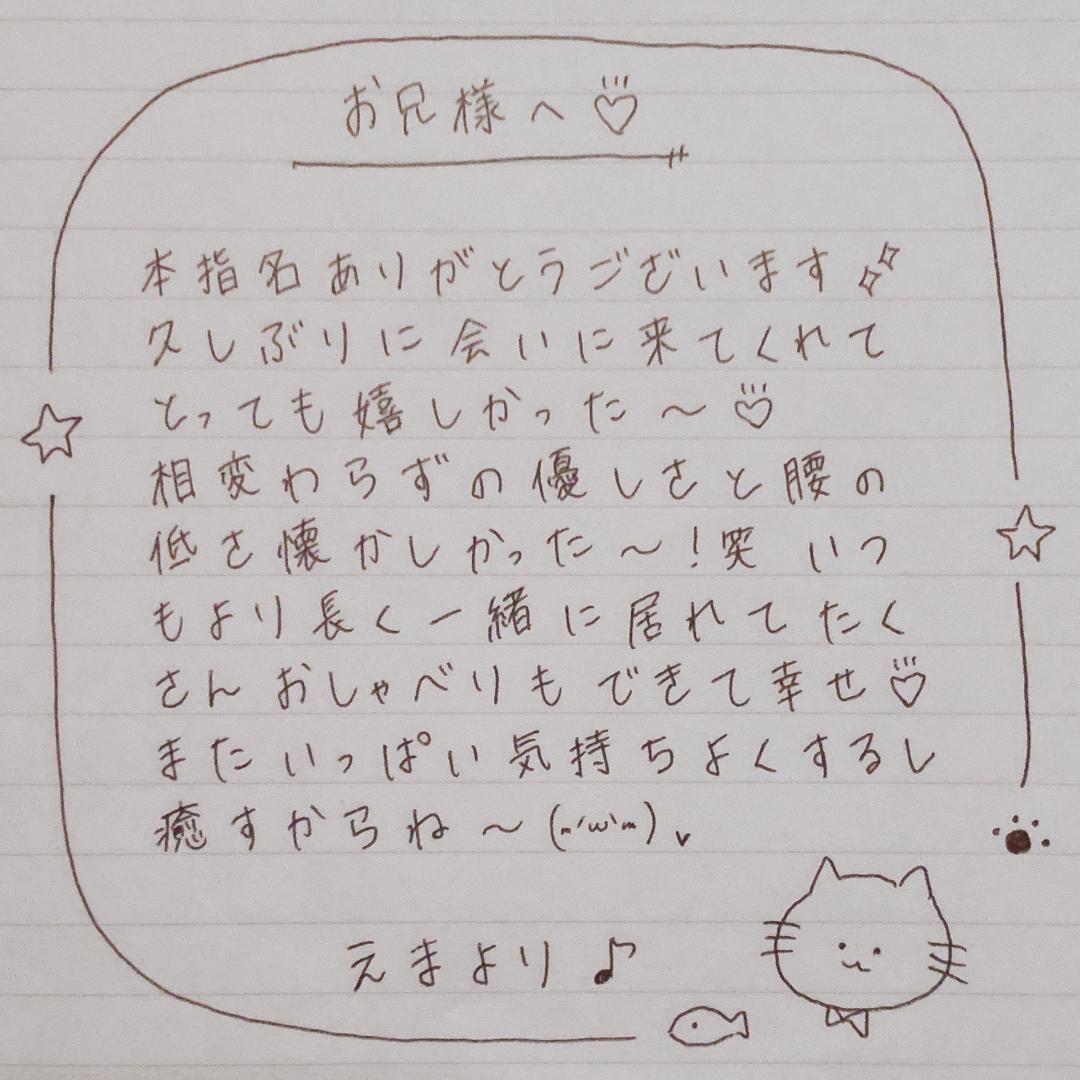 お兄様へ♡
本指名ありがとうございます✨
久しぶりに会いに来てくれて
とっても嬉しかった〜♡
相変わらずの優しさと腰の
低さ懐かしかった〜!笑 いつ
もより長く一緒に居れてたく
さんおしゃべりもできて幸せ♡
またいっぱい気持ちよくするし
癒すからね〜(⑅'ω'⑅)♥
えまより♪